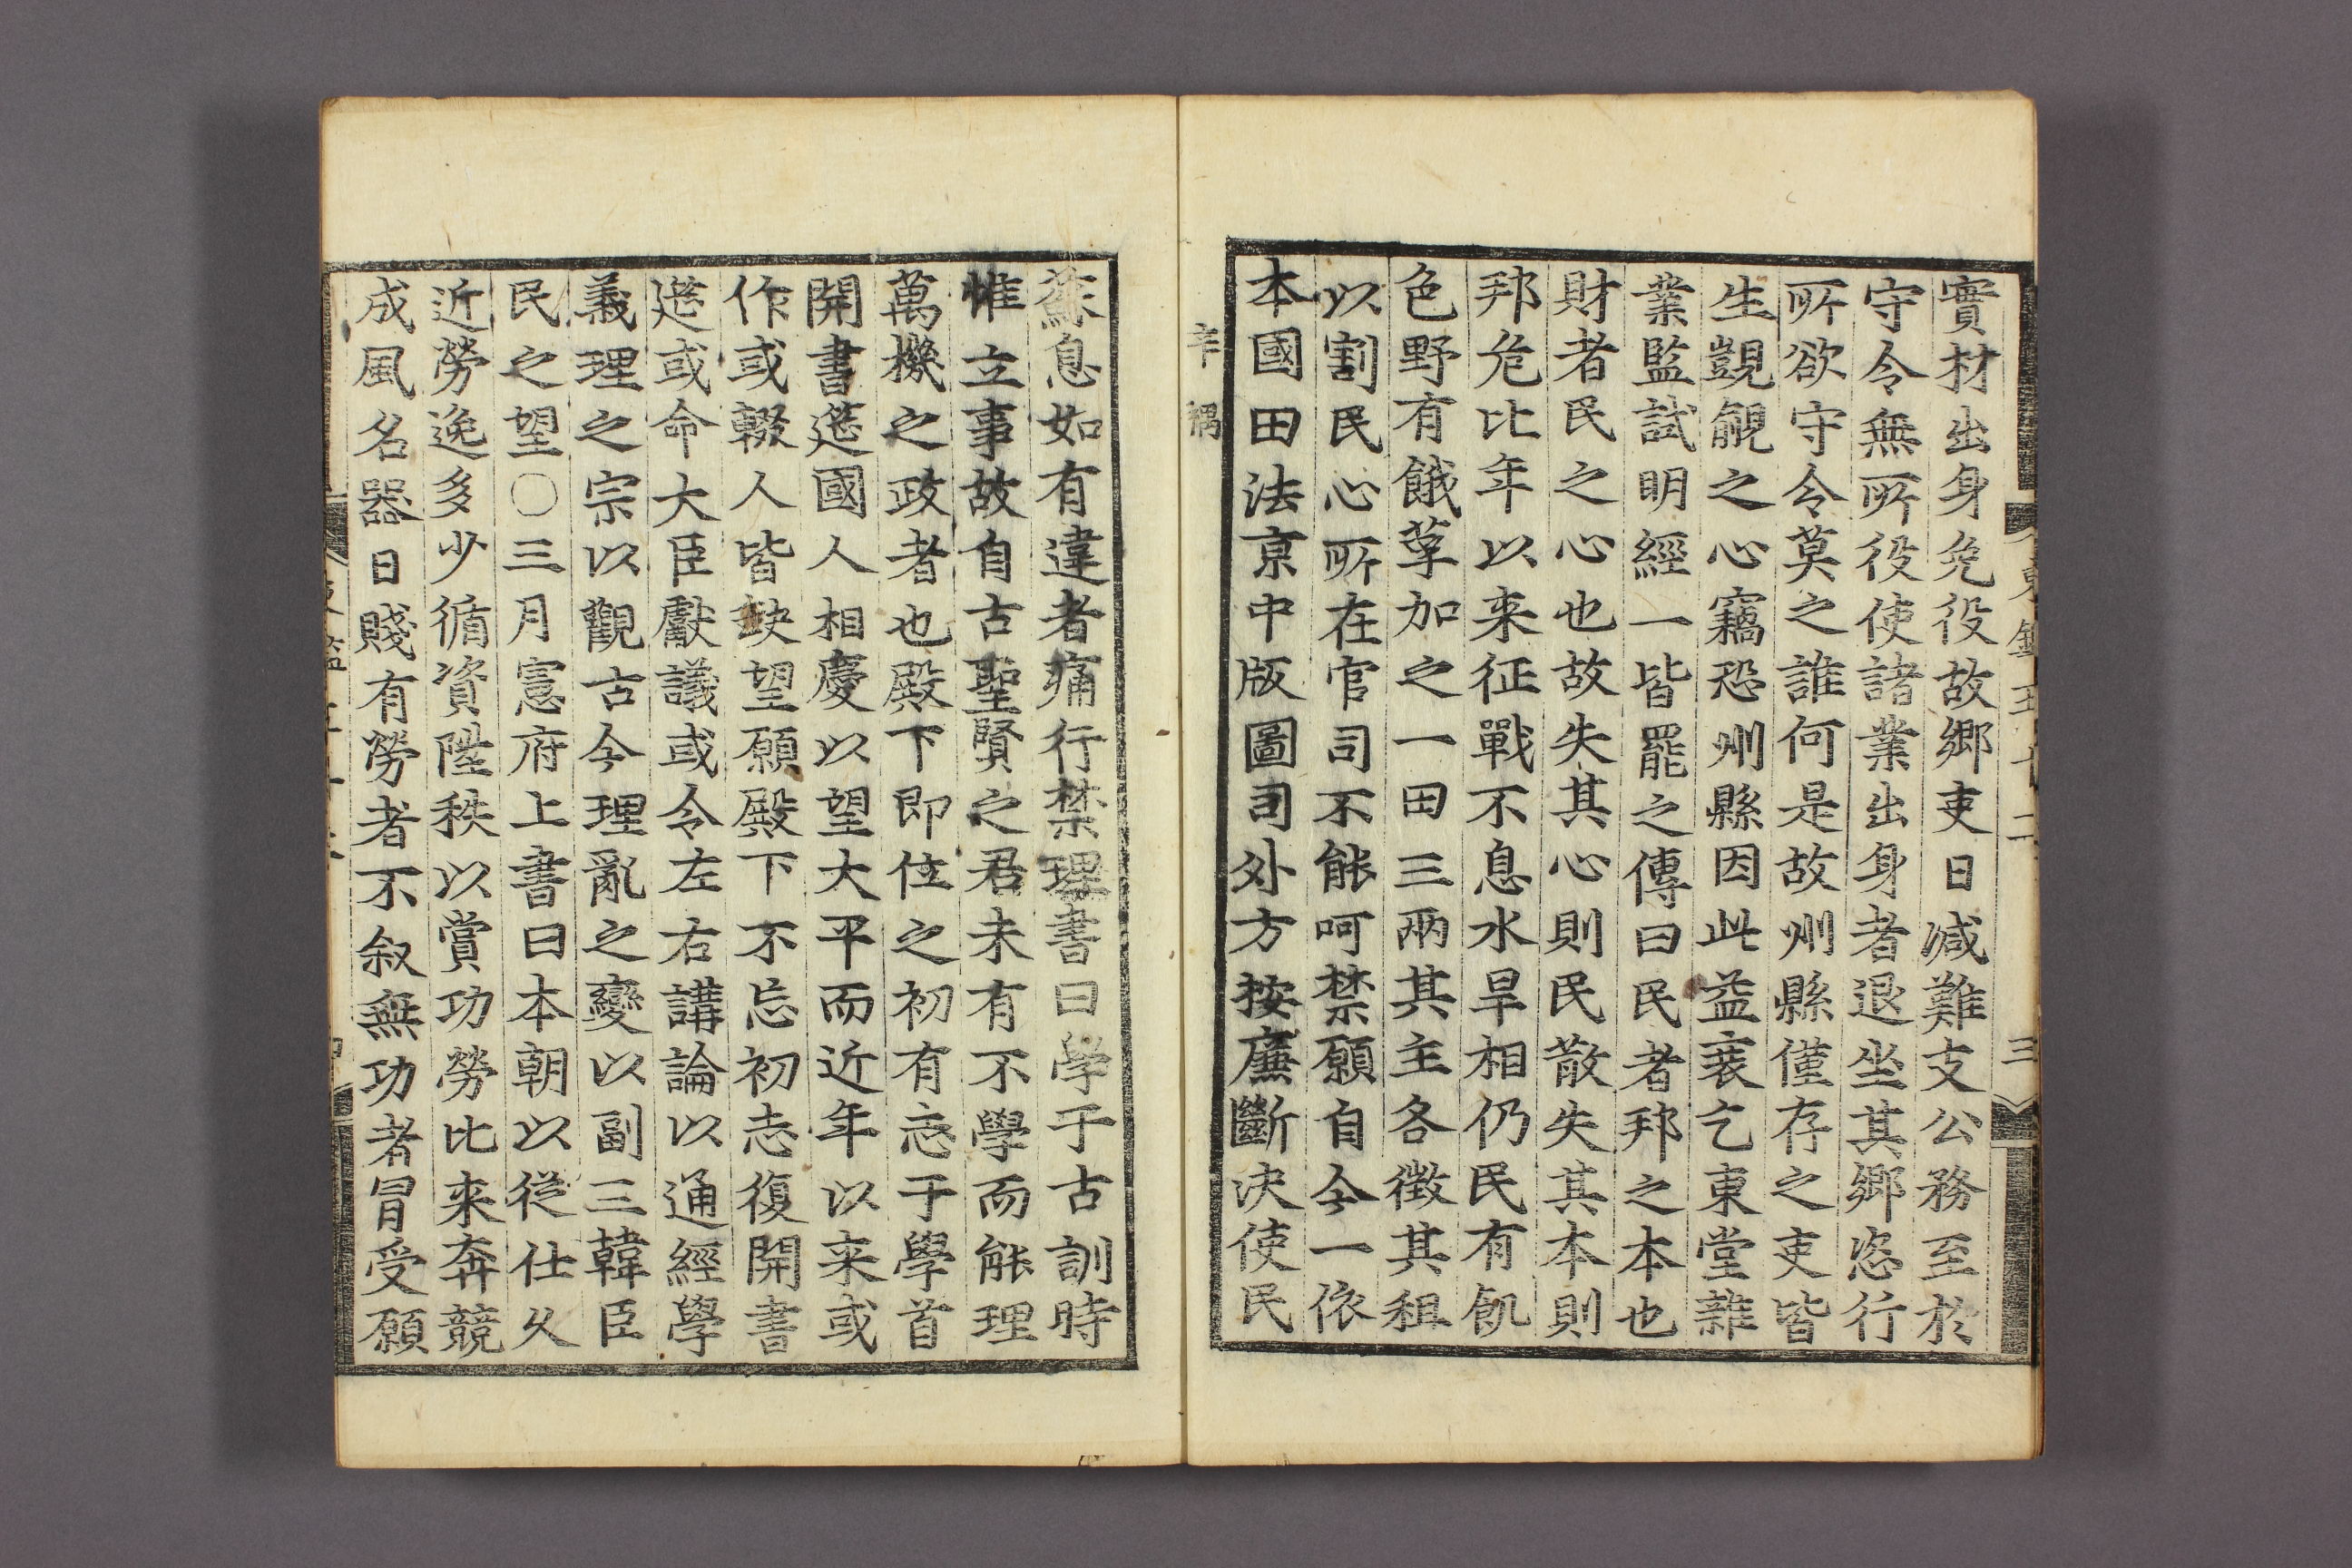 實材出身免役故鄉吏日减難支公務至於
守令無所役使諸業出身者退坐其鄉恣行
所欲守令莫之誰何是故州縣僅存之吏皆
生覬覦之心竊恐州縣因此益衰乞東堂雜
業監試明經一皆罷之傳曰民者邦之本也
財者民之心也故失其心則民散失其本則
邦危比年以来征戰不息水旱相仍民有飢
色野有餓莩加之一田三兩其主各徵其租
以割民心所在官司不能呵禁願自今一依
本國田法京中版圖司外方按廉斷决使民
辛禑
蘇息如有違者痛行禁理書曰学于古訓時
惟立事故自古聖賢之君未有不學而能理
萬機之政者也殿下即位之初有志于學首
開書筵國人相慶以望大平而近年以来或
作或輟人皆缺望願殿下不忘初志復開書
筵或命大臣獻議或令左右講論以通經學
義理之宗以觀古今理亂之變以副三韓臣
民之望〇三月憲府上書曰本朝以從仕久
近勞逸多少循資陞秩以賞功勞比来奔競
成風名器日賤有勞者不叙無功者冒受願